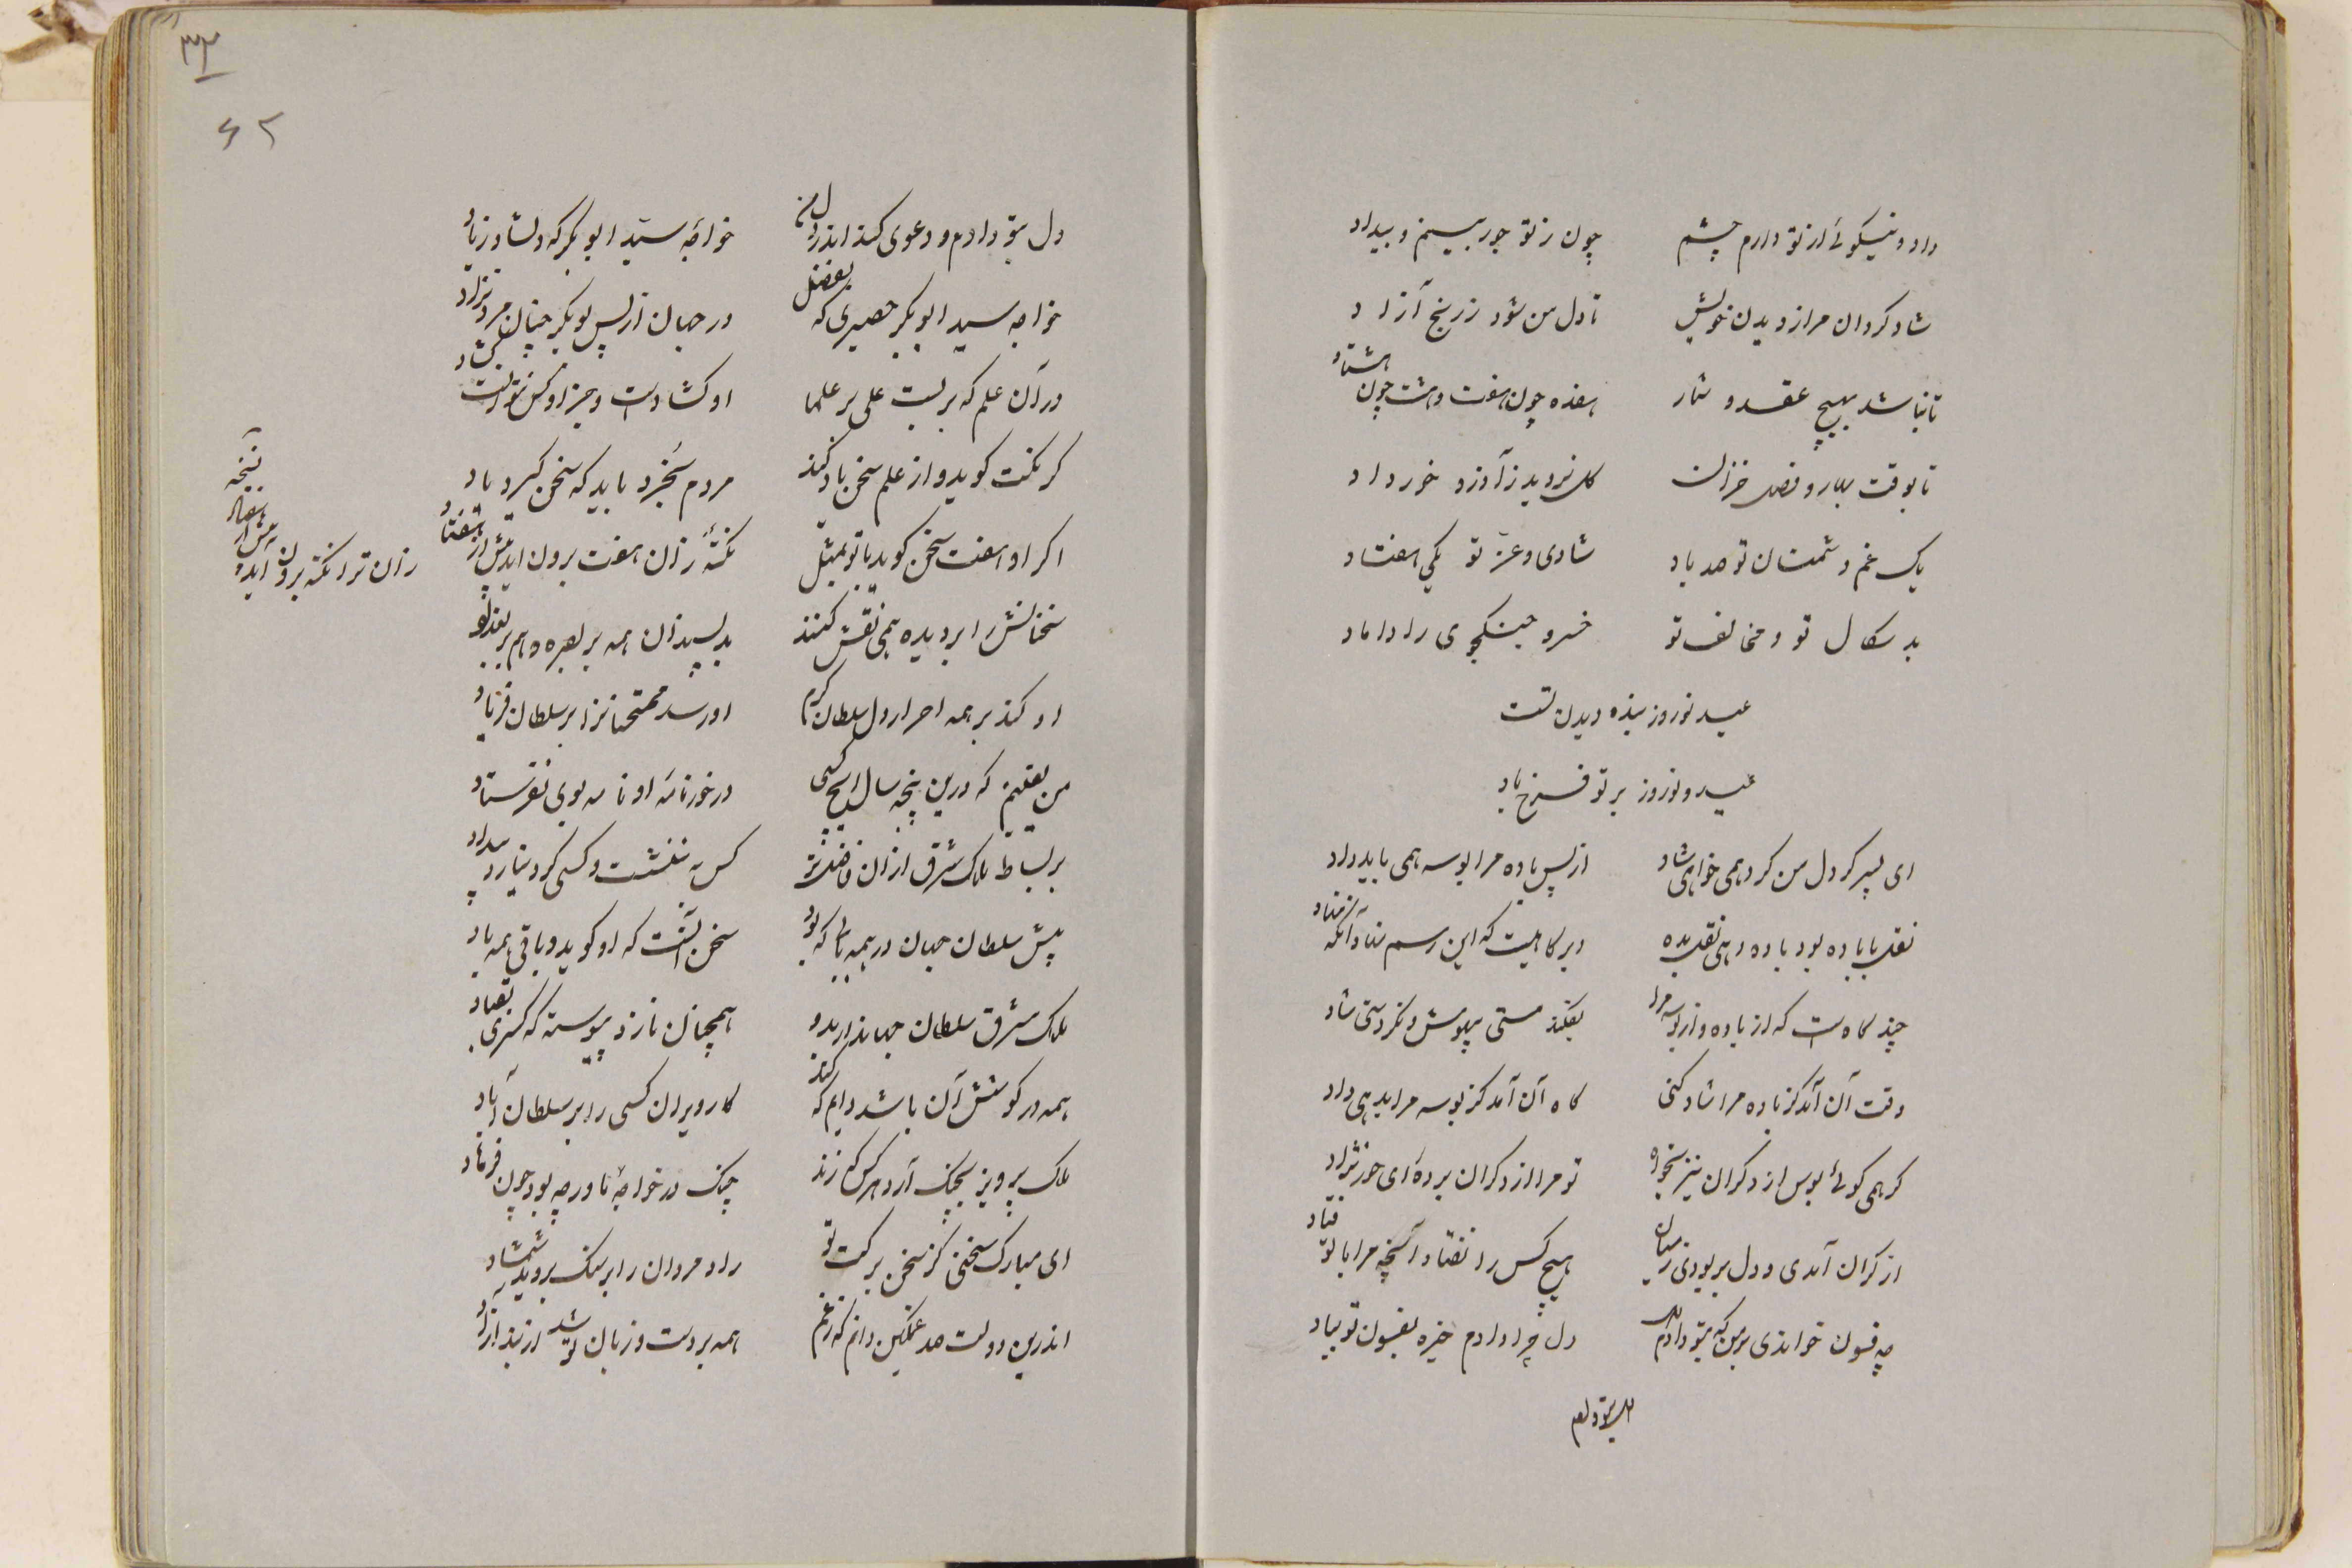 داد و نیکوئی از تو دارم چشم چون ز تو جور بینم و بیداد
شاد کردان مرا ز دیدن خویش تا دل من شود ز رنج آزاد
تا نباشد بهیچ عقد و شمار هفده چون هفت و هشت چون هشتاد
تا بوقت بهار و فصل خزان کل نروید ز آذر و خرداد
یک غم دشمنان تو صد باد شادی و عز تو یکی هفتاد
بد سکال تو و مخالف تو خسرو جنکجوی را داماد
عید نوروز بنده دیدن تست
عید و نوروز بر تو فرخ باد
ای پسر کر دل من کرد همی خواهی شاد از پس باده مرا بوسه همی باید داد
نقل با باده بود باده دهی نقل بده دیر کاهیست که این رسم نهاد آنکه نهاد
چند کاهست که از باده و از بوسه مرا نفکند مستی بیهوش و نکردستی شاد
وقت آن آمد کز باده مرا شاد کنی کاه آن آمد کز بوسه مرا بدهی داد
کر همی کوئی بوس از دکران نیز بخواه تو مرا از دکران برده‌ای حور نژاد
از کران آمدی و دل بربودی ز میان هیچ کس را نفتاد آنچه مرا با تو فتاد
چه فسون خواندی بر من که بتو دادم دل دل چرا دادم خیره بفسون تو بباد
دل بتو دادم
۳۲
۶۲
دل بتو دادم و دعوی کند اندر دل من خواجه سید ابوبکر که دلشاد زیاد
خواجه سید ابوبکر حصیری که بفضل در جهان از پس بوبکر چنان مرد نزاد
در آن علم که بربست علی بر علما او کشادست و جز او کس نتوانست کشاد
کر نکت کوید و از علم سخن یاد کند مردم بخرد باید که سخن کیرد یاد
اکر او هفت سخن کوید با تو بمثل نکتۀ زان هفت برون اید بیش از هفتاد
نسخه
زان ترا نکته برون آید بیش از هفتاد
سخنانش را بر دیده همی نقش کنند بدبیران همه بر بصره و هم بر بغداد
او کند بر همه احرار دل سلطان کرم او رسد ممتحنانرا بر سلطان فریاد
من یقینم که درین پنجه سال ایچ کسی در خور نامۀ او نامه بوی نفرستاد
بر بساط ملک شرق از ان فاضلتر کس به ننشست و کسی کرد نیارد بیداد
پیش سلطان جهان در همه بابی که بود سخن آنست که او کوید و باقی همه باد
ملک شرق سلطان جهاندار بدو همچنان نازد پیوسته که کسری بقباد
همه در کوشش آن باشد دایم که کند کار ویران کسی را بر سلطان آباد
ملک پرویز بچنک آرد هر کس که زند چنک در خواجۀ ما ور چه بود چون فرهاد
ای مبارک سخنی کز سخن برکت تو راد مردان را بر سنک بروید شمشاد
اندرین دولت صد غمکین دانم که ز غم همه بر دست و زبان تو شد از بند آزاد